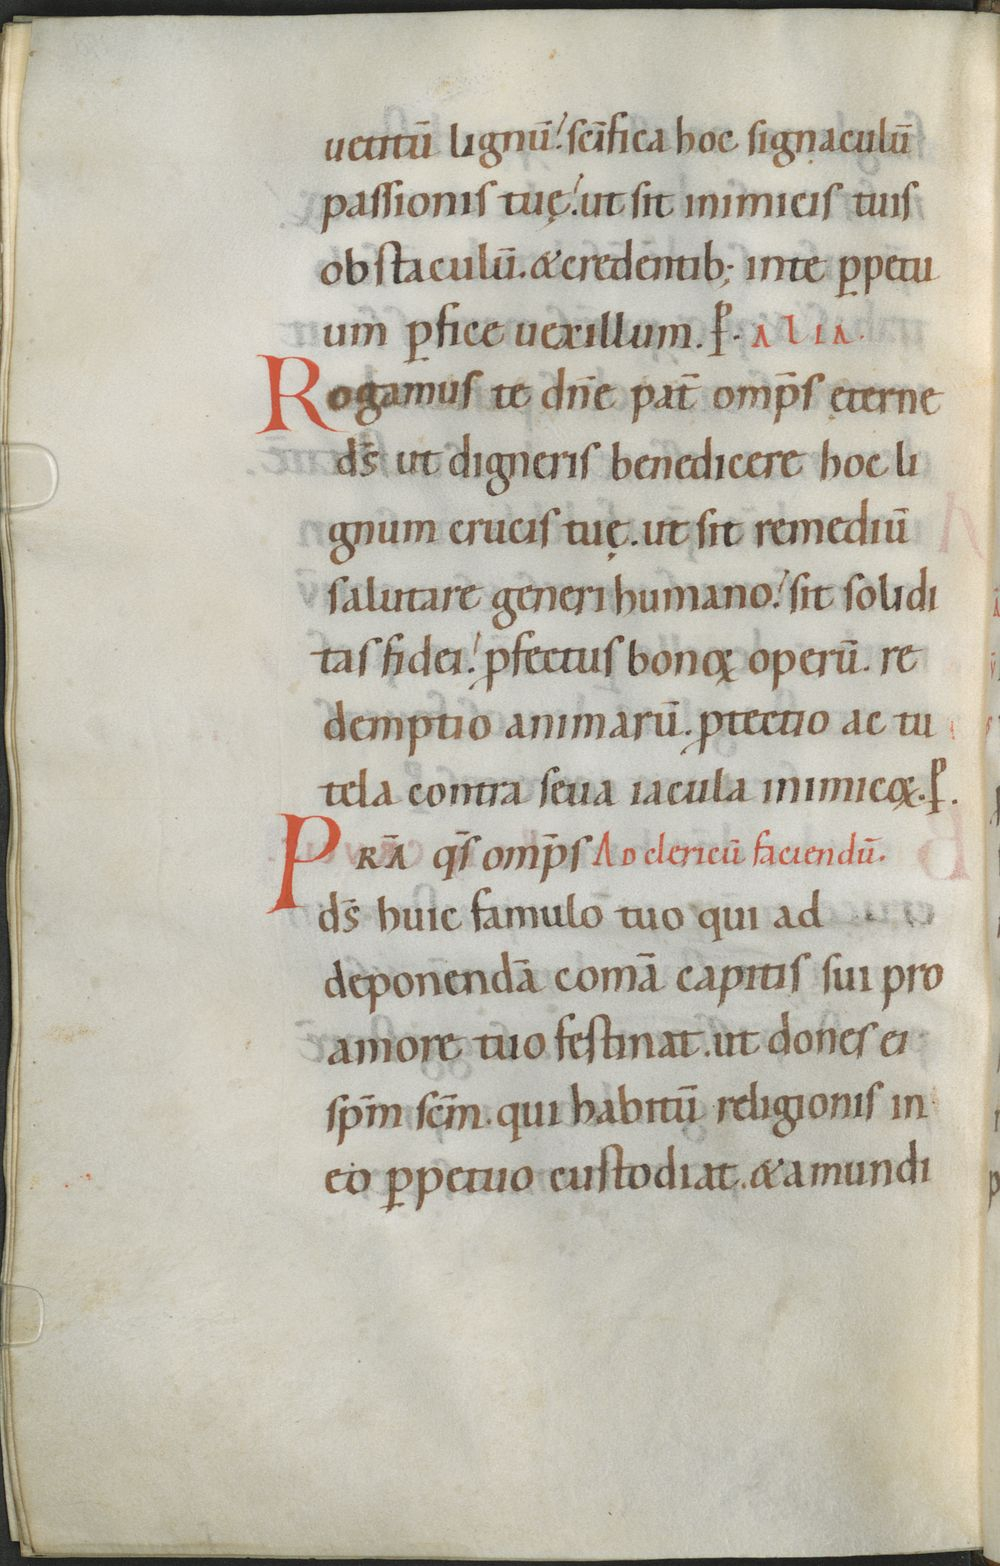 uetitū lignū. scīfica hoc signaculū
passionis tuę. ut sit inimicis tuis
obstaculū. & credentib; in te ꝑpetu
um ꝑfice uexillum. ꝑ. ALIA.
Rogamus te dn̄e pat̄ omp̄s eterne
ds̄ ut digneris benedicere hoc li
gnum crucis tuę. ut sit remediū
salutare generi humano. sit solidi
tas fidei. ꝓfectus bonoꝝ operū. re
demptio animarū. ꝓtectio ac tu
tela contra seua iacula inimicoꝝ. ꝑ.
PRA̅ qs̄ omp̄s Ad clericū faciendū.
ds̄ huic famulo tuo qui ad
deponendā comā capitis sui pro
amore tuo festinat. ut dones ei
spm̄ scm̄. qui habitū religionis in
eo ꝑpetuo custodiat. & a mundi